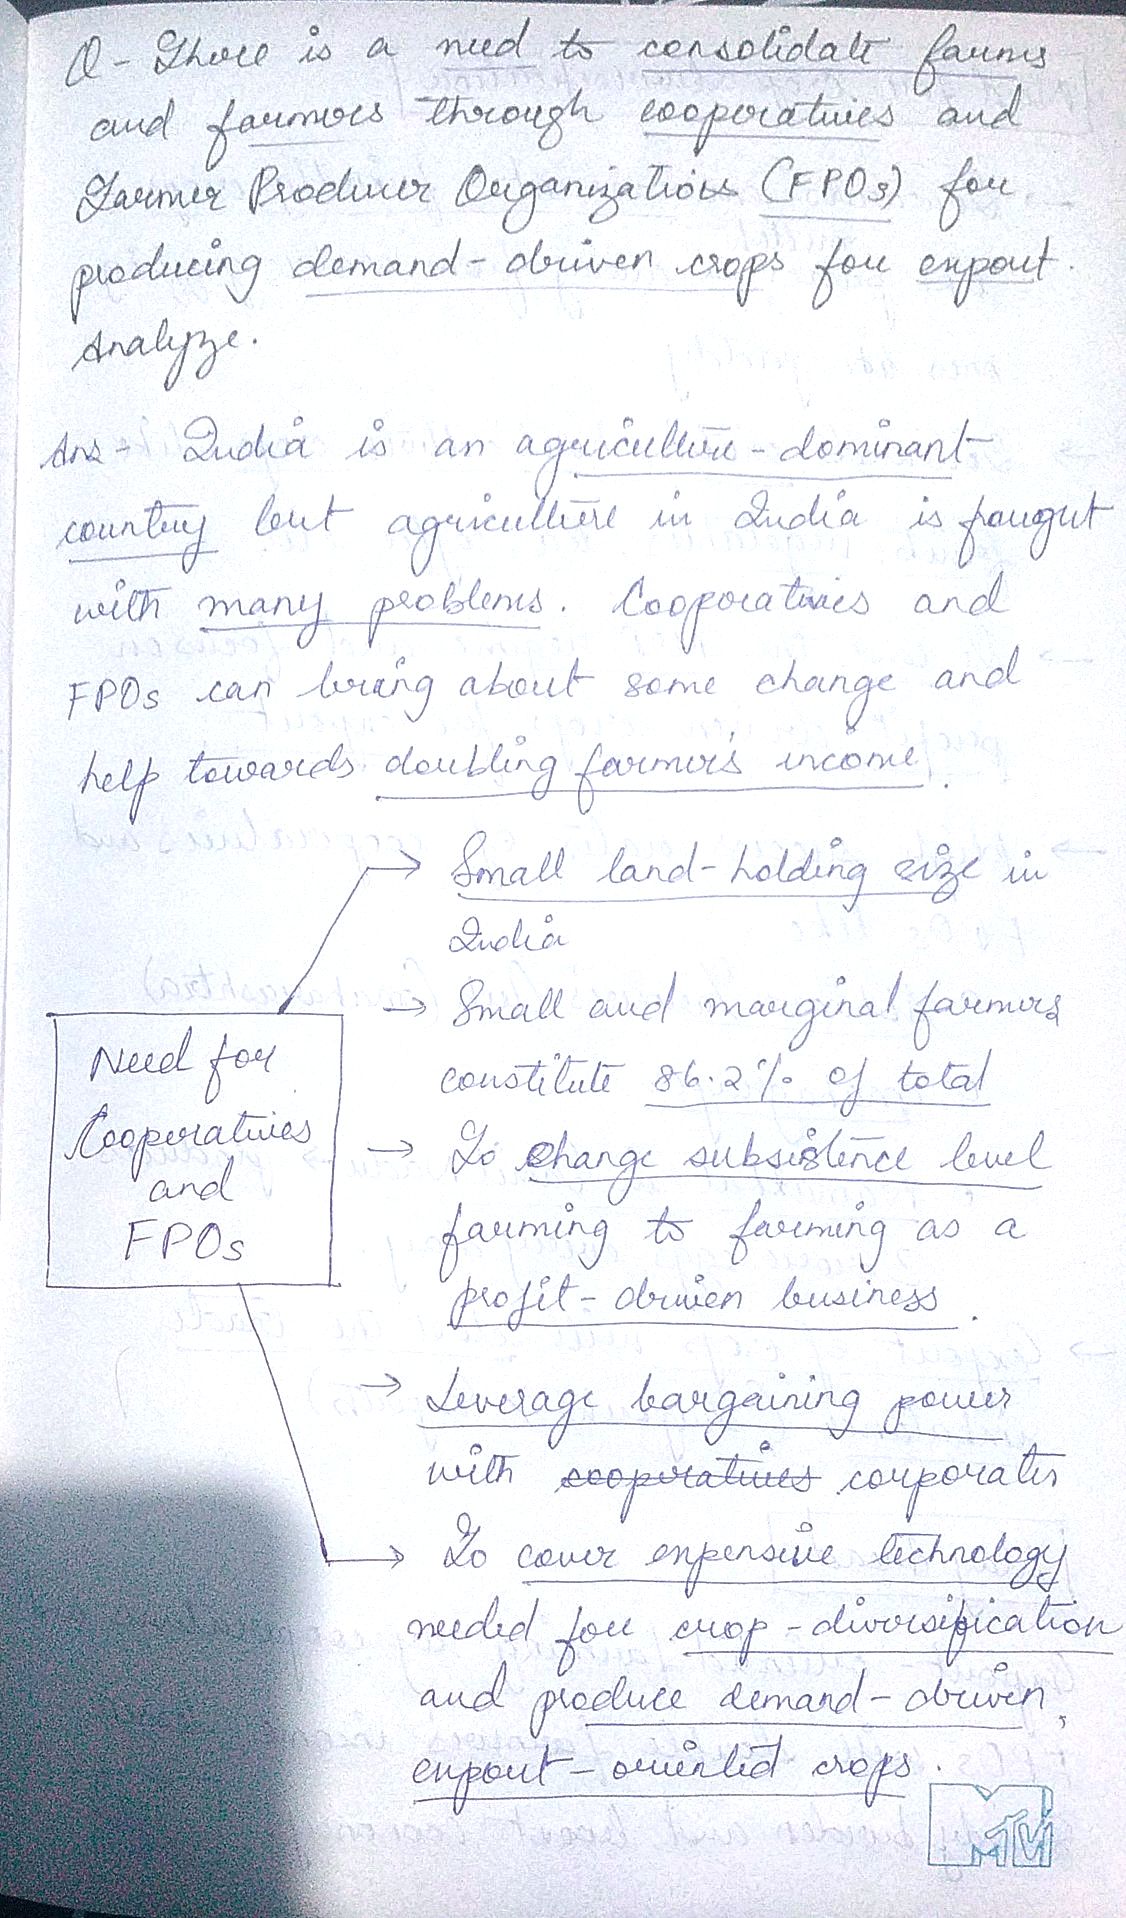 Q- There is a need to consolidate farms
and farmers through cooperatives and
Farmer Producer Organizations (FPOs) for
producing demand-driven crops for export.
Analyze.
Ans- India is an agriculture-dominant
country but agriculture in India is fraught
with many problems. Cooperatives and
FPOs can bring about some change and
help towards doubling farmer's income.
→ Small land-holding size in
India
→ Small and marginal farmers
constitute 86.2% of total
Need for
Cooperatives
and
FPOs
→ To change subsistence level
farming to farming as a
profit-driven business.
→ Leverage bargaining power
with cooperatives corporates
→ To cover expensive technology
needed for crop-diversification
and produce demand-driven,
export-oriented crops.
MTV